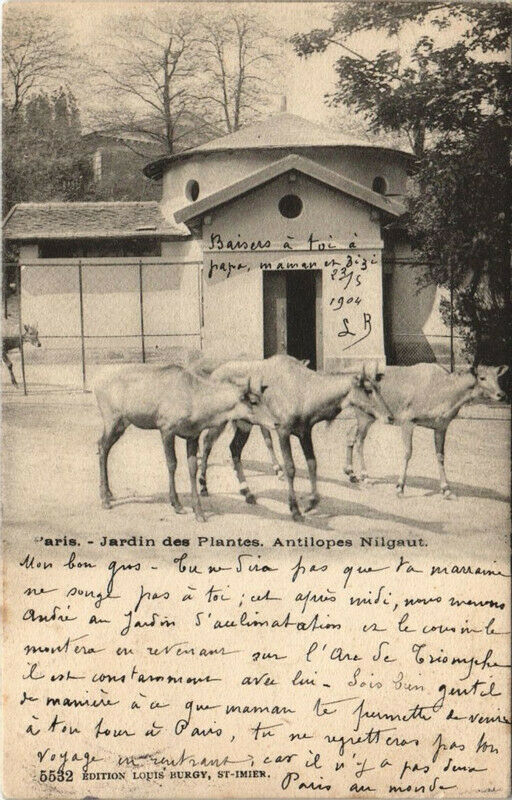 Baisers à toi à
papa, maman et Zizi
23/5
1904
LR
Paris. - Jardin des Plantes. Antilopes Nilgaut.
Mon bon gros - Tu ne dira pas que ta marraine
ne songe pas à toi ; cet après midi, nous menons
André au Jardin d'acclimatation et le cousin le
montera en revenant sur l'Arc de Triomphe
il est constamment avec lui - Sois bien gentil
de manière à ce que maman te permette de venir
à ton tour à Paris, tu ne regretteras pas ton
voyage en rentrant, car il n'y a pas deux
Paris au monde
5532 ÉDITION LOUIS BURGY, ST-IMIER.